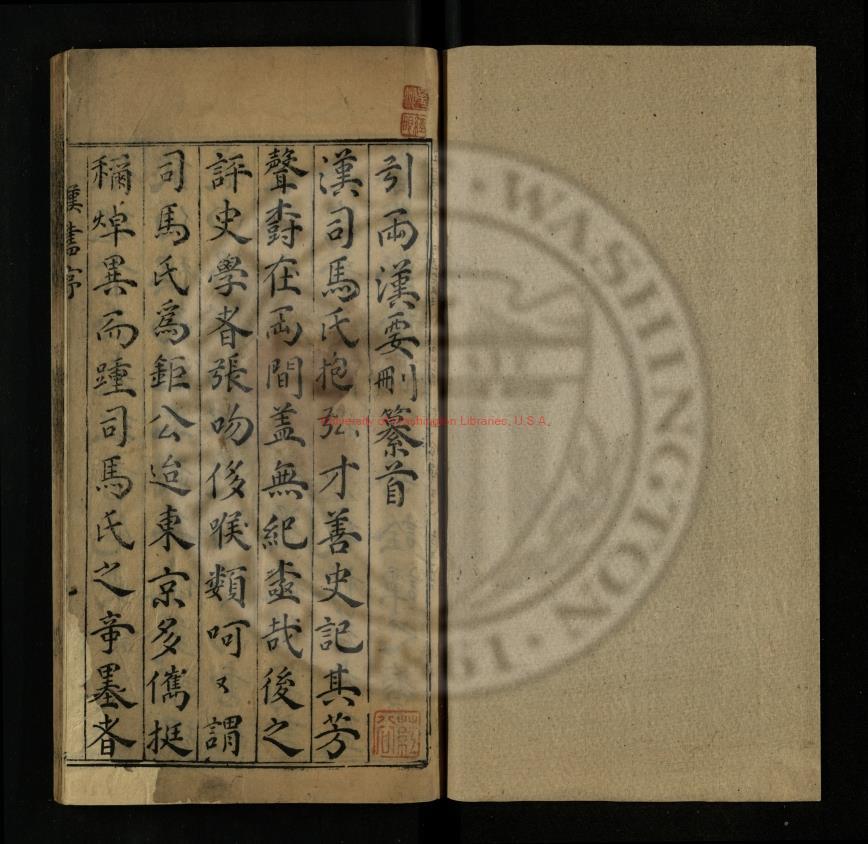 引兩漢要刪纂首
漢司馬氏抱弘才善史記其芳
聲在兩間蓋無紀哉後之
評史學者張吻侈喉類呵〻謂
司馬氏為鉅公迨東京多儁挺
稱焯異而踵司馬氏之帝墨者
漢書序
University of Washington Libraries, U.S.A.
WASHINGTON